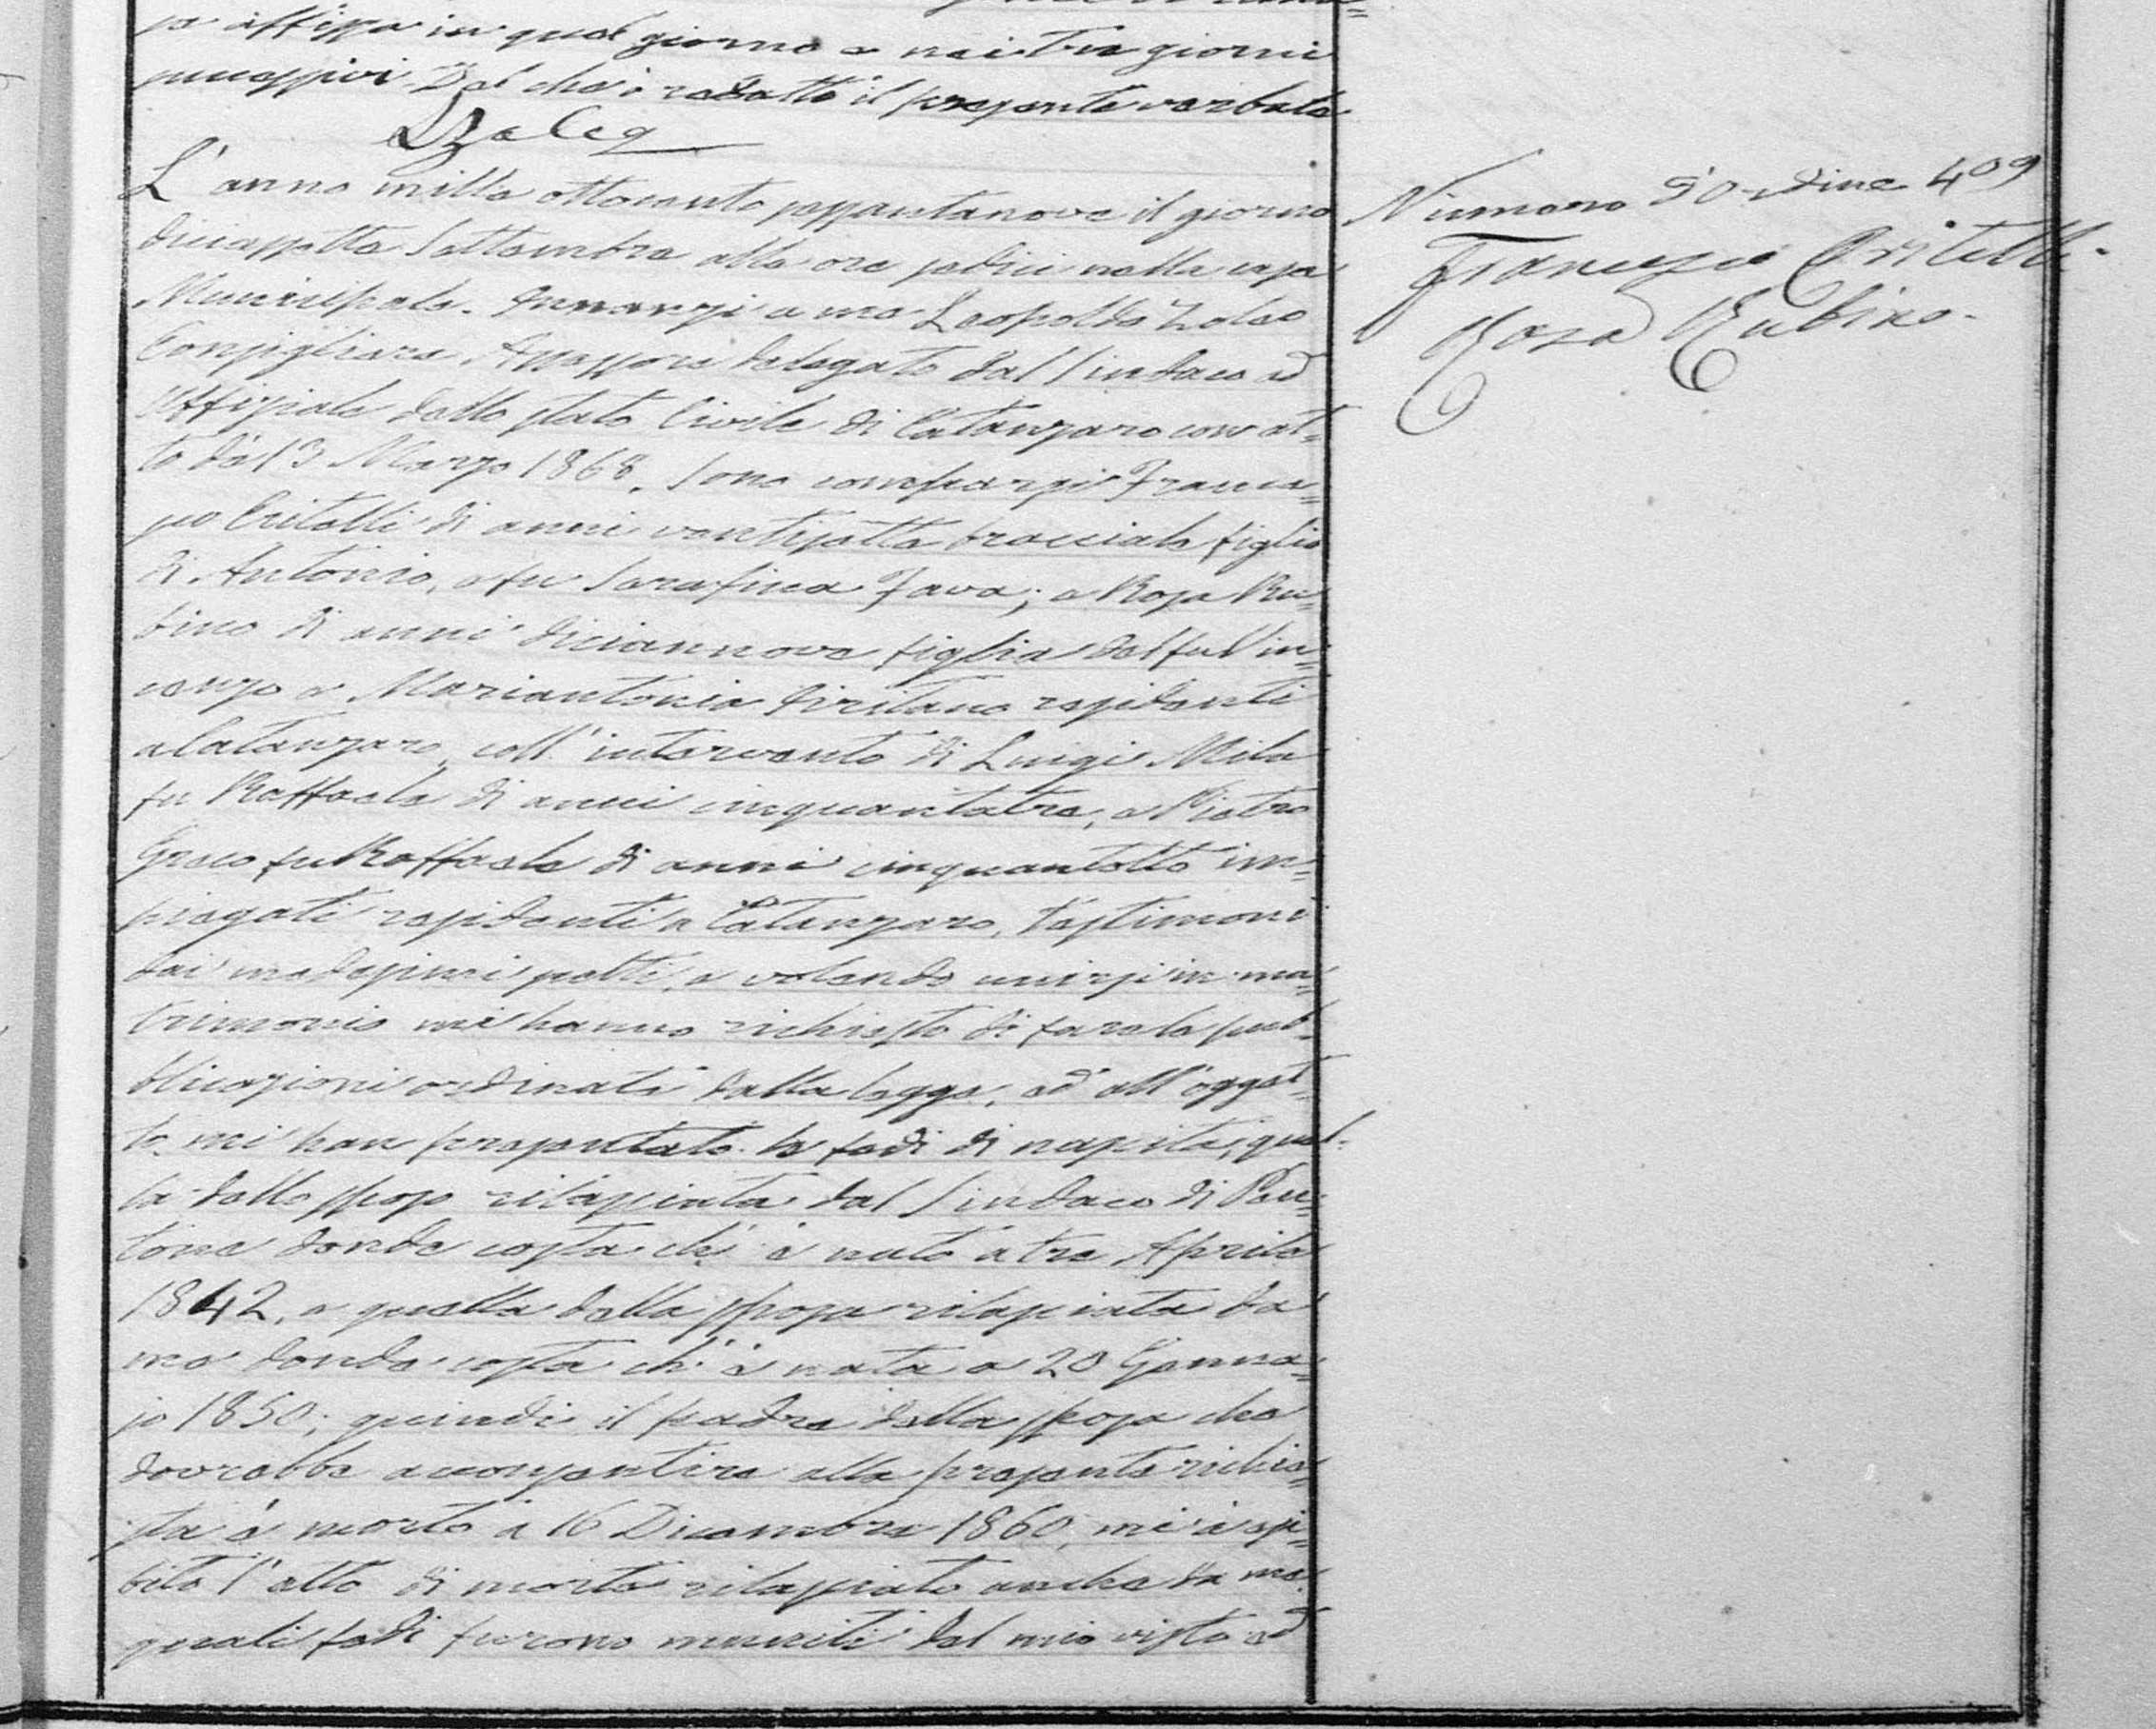 se affissa in quel giorno e nei tre giorni
successivi. Del che è redatto il presente verbale
L Zaleo
L'anno mille ottocento sessantanove il giorno
diciassette Settembre alle ore sedici nella casa
Municipale. Innanzi a me Leopoldo Zaleo
Consigliere Assessore delegato dal Sindaco ad
Uffiziale dello Stato Civile di Catanzaro con at=
to de' 13 Marzo 1868. Sono comparsi France=
sco Critelli di anni ventisette bracciale figlio
di Antonio, e fu Serafina Fava; e Rosa Ru=
bino di anni diciannove figlia del fu Vin=
cenzo e Mariantonia residenti
a Catanzaro, coll'intervento di Luigi Mila
fu Raffaele di anni cinquantatre, e Pietro
Greco fu Raffaele di anni cinquantotto im=
piegati residenti a Catanzaro, testimoni
dai medesimi scelti, e volendo unirsi in ma=
trimonio mi hanno richiesto di fare le pub=
blicazioni ordinate dalla legge, ed all'ogget=
to mi han presentato le fedi di nascita, quel=
la dello sposo rilasciata dal Sindaco di Pen=
tone donde costa ch'è nato a tre Aprile
1842, e quella della sposa rilasciata da
me donde costa ch'è nata a 20 Genna=
jo 1850; quindi il padre della sposa che
dovrebbe acconsentire alla presente richie=
sta è morto a 16 Dicembre 1860, mi à esi=
bito l'atto di morte rilasciato anche da me
quali fedi furono muniti del mio visto ed
Numero d'ordine 409
Francesco Critelli
Rosa Rubino.